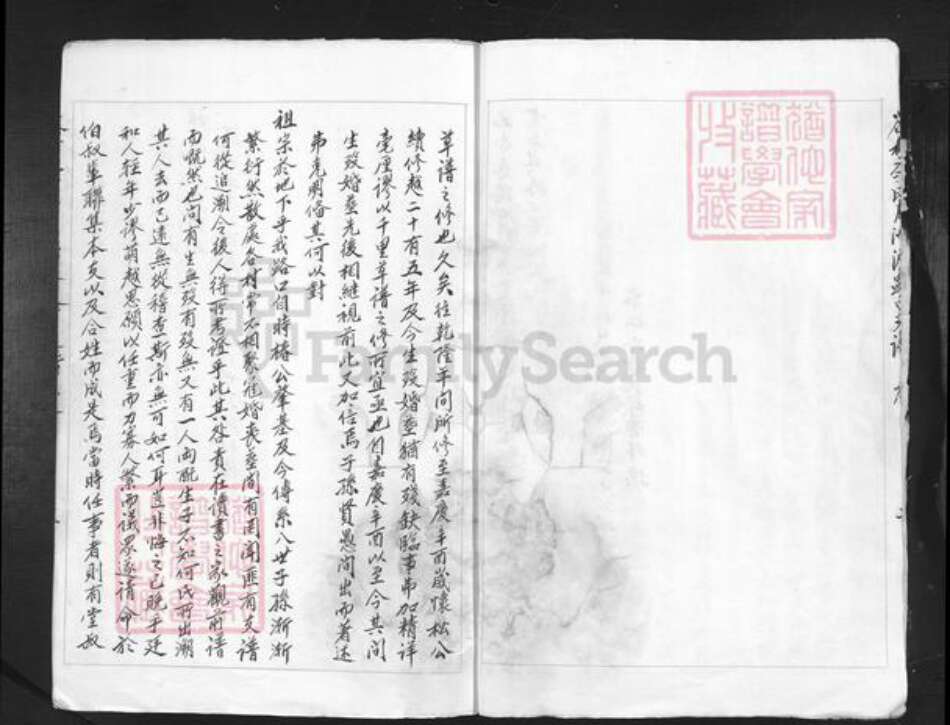 草譜之修也久矣往乾隆年间所修至嘉慶辛酉歲懷松公
續修越二十有五年及今生殁婚塟猶有殘缺臨事弗加精詳
毫厘謬以千里草譜之修所宜亟也自嘉慶辛酉以至今其间
生殁婚塟先後相継視前此又加倍焉子孫賢愚间出而著述
弗克明俻其何以對
祖宗於地下乎我路口自時椿公肇基及今傳系八世子孫漸漸
繁衍然散處各村常不相聚雖婚喪塟间有闻匪有支譜
何從追溯令後人得所考證乎此其咎責在讀書之家觀前譜
而嘅然也问有生無殁有殁無又有一人両配生子不知何氏所出溯
其人去而已遠無從稽查斯亦無可如何耳豈非悔之已晚乎廷
和人輕年少謬萌越思願以任重而力寡人繁而議眾遂請命於
伯叔輩聯集本支以及合姓而成是焉當時任事者則有堂叔
猶他家譜學會收藏
FamilySearch